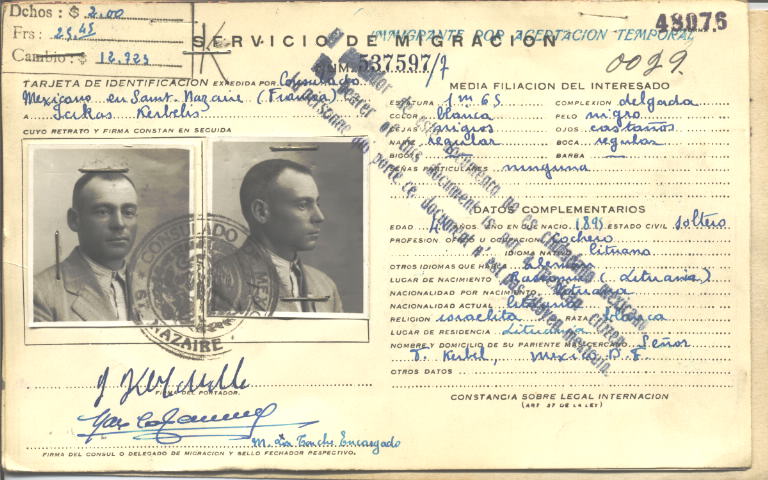 Dchos: $ 2.00
Frs: 25,45
Cambio: $ 12.725
48076
INMIGRANTE POR ACEPTACION TEMPORAL
K
SERVICIO DE MIGRACION
NUM. 537597/7
0029.
TARJETA DE IDENTIFICACION EXPEDIDA POR Consulado
Mexicano en Saint-Nazaire (Francia)
A Kerbelis
CUYO RETRATO Y FIRMA CONSTAN EN SEGUIDA
CONSULADO
NAZAIRE
FIRMA DEL PORTADOR.
Encargado
FIRMA DEL CONSUL O DELEGADO DE MIGRACION Y SELLO FECHADOR RESPECTIVO.
MEDIA FILIACION DEL INTERESADO
ESTATURA 1m65 COMPLEXION delgada
COLOR blanca PELO nigro
CEJAS nigros OJOS castaños
NARIZ regular BOCA regular
BIGOTE BARBA —
SEÑAS PARTICULARES ninguna
DATOS COMPLEMENTARIOS
EDAD AÑO EN QUE NACIO 1895 ESTADO CIVIL soltero
PROFESION, OFICIO U OCUPACION cochero
IDIOMA NATIVO lituano
OTROS IDIOMAS QUE HABLA
LUGAR DE NACIMIENTO (Lituania)
NACIONALIDAD POR NACIMIENTO lituana
NACIONALIDAD ACTUAL lituana
RELIGION israelita RAZA blanca
LUGAR DE RESIDENCIA Lituania
NOMBRE Y DOMICILIO DE SU PARIENTE MAS CERCANO Señor
Kerbel, Mexico D. F.
OTROS DATOS
CONSTANCIA SOBRE LEGAL INTERNACION
(ART 57 DE LA LEY)